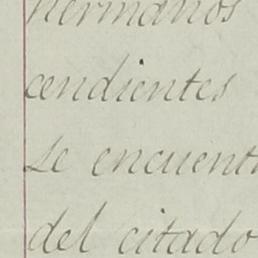 hermanos
cendientes
se encuent
del citado